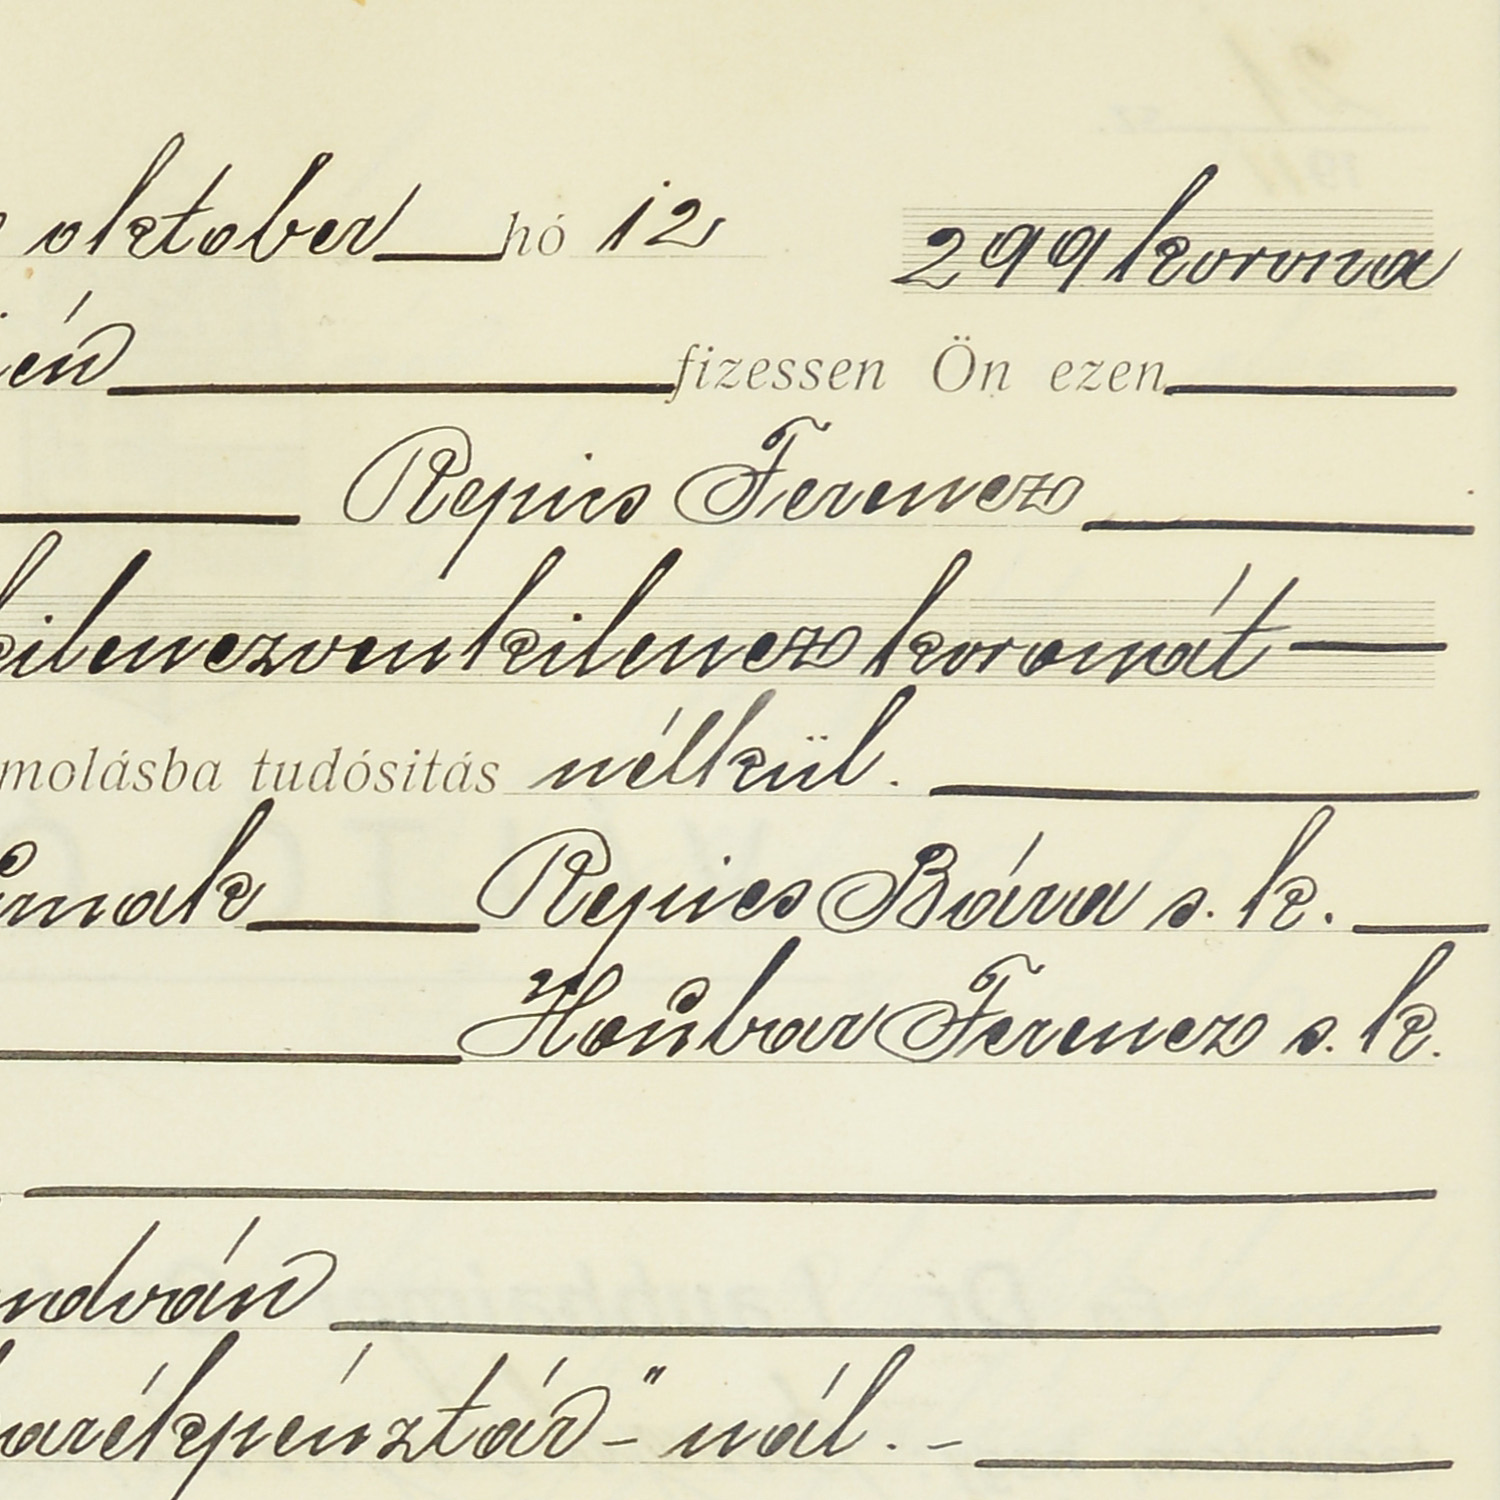 oktober hó 12 299 korona
ién fizessen Ön ezen
Repics Ferencz
kilenczvenkilencz koronát
molásba tudósitás nélkül.
úrnak Repics Bára s. k.
Houbar Ferencz s. k.
ndván
арékpénztár-" nál.-